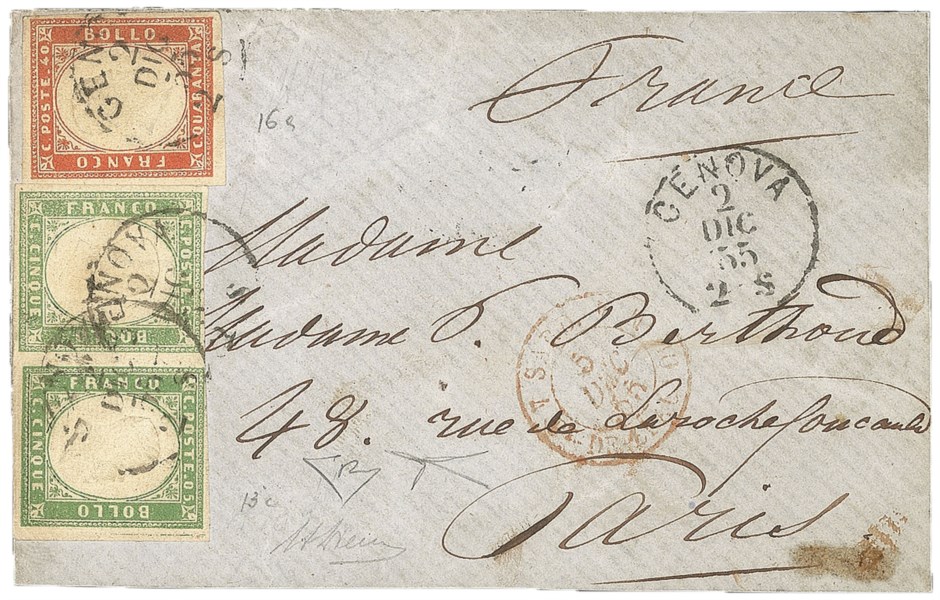 BOLLO
C. POSTE. 40
C. QUARANTA
FRANCO
GENOVA
2
DIC
55
2 S
16s
France
GENOVA
2
DIC
55
2 S
FRANCO
C. CINQUE
C. POSTE. 05
BOLLO
Madame
Madame P. Berthoud
5
DEC
55
48. rue de Larochefoucauld
FRANCO
C. CINQUE
C. POSTE. 05
BOLLO
Paris